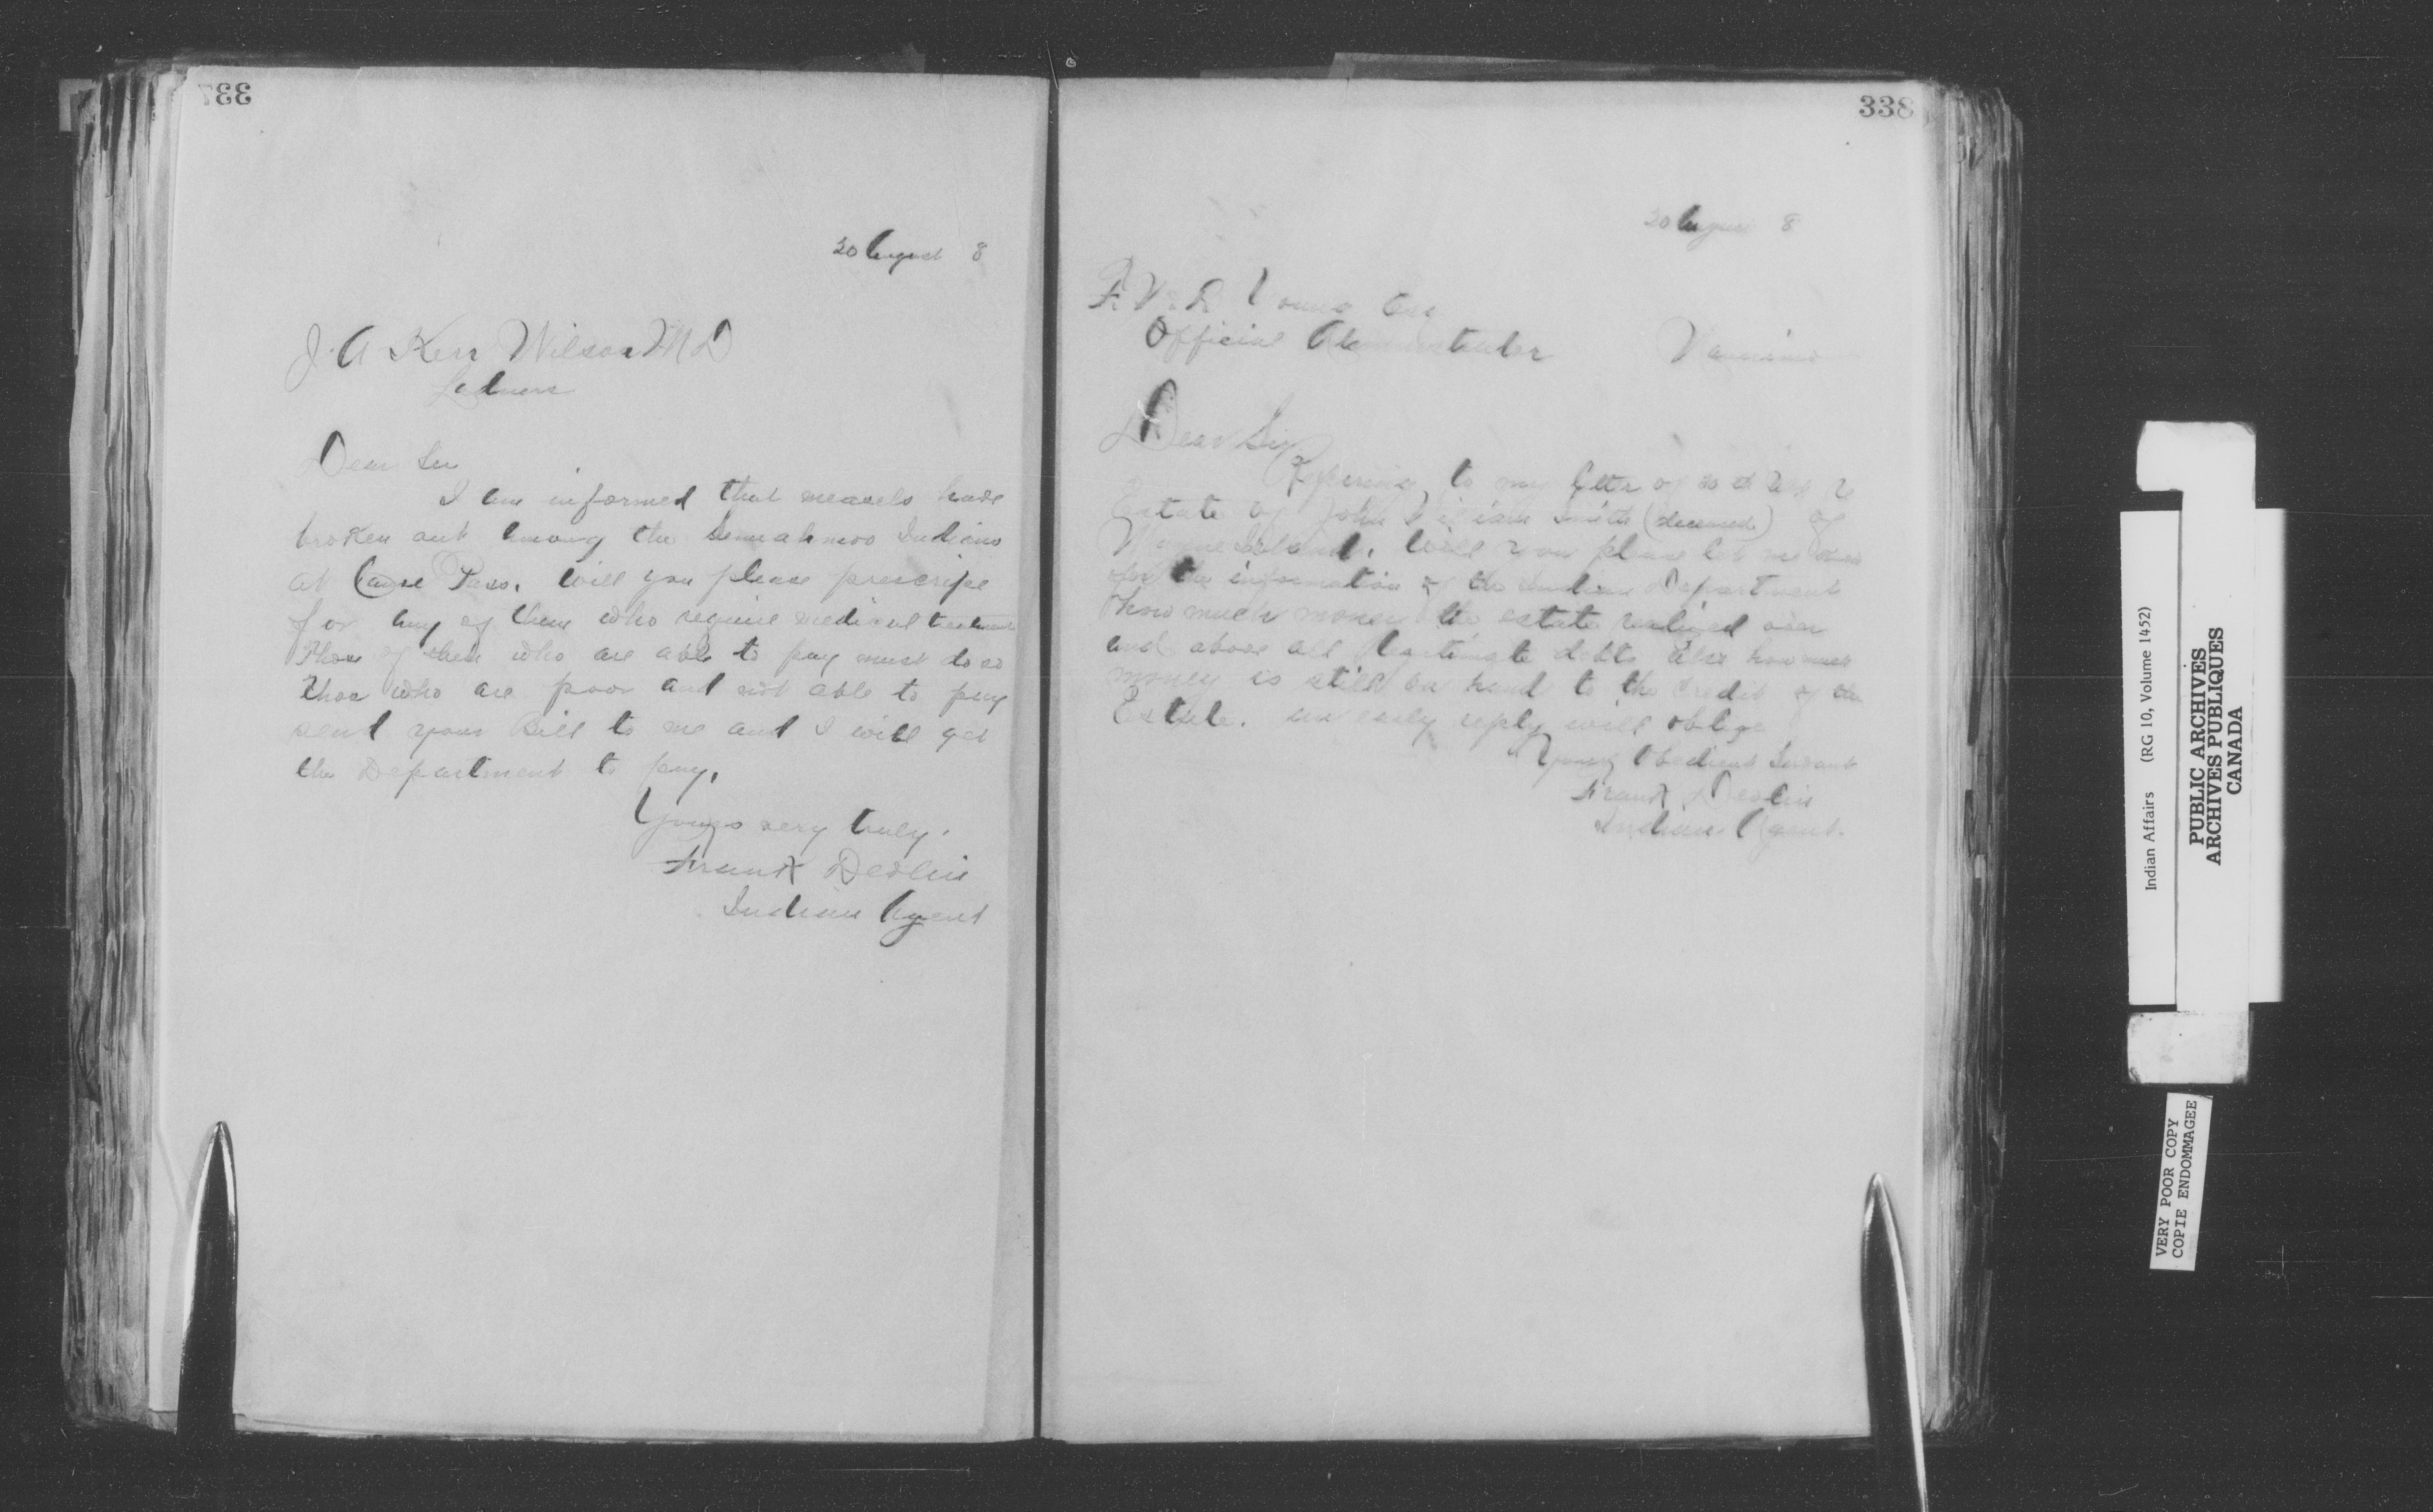 337
20 August 8
J. A Kerr Wilson M D
Ladners
Dear Sir
I am informed that measels have
broken out among the Semiahmoo Indians
at Canoe Pass. Will you please prescripe
for any of them who require medical treatment
Those of them who are able to pay must do so
those who are poor and not able to pay
send your Bill to me and I will get
the Department to pay.
Yours very truly.
Frank Devlin
Indian Agent
338
20 August 8
Young Esq
Official Administrator Nanaimo
Dear Sir
Referring to my letter of re
Estate of John William Smith (deceased) of
Island. Will you please let me know
for the information of the Indian Department
how much money the estate realized over
and above all legitimate debts also how much
money is still on hand to the credit of the
Estate. an early reply will oblige
Your Obedient Servant
Frank Devlin
Indian Agent.
Indian Affairs (RG 10, Volume 1452)
PUBLIC ARCHIVES
ARCHIVES PUBLIQUES
CANADA
VERY POOR COPY
COPIE ENDOMMAGEE